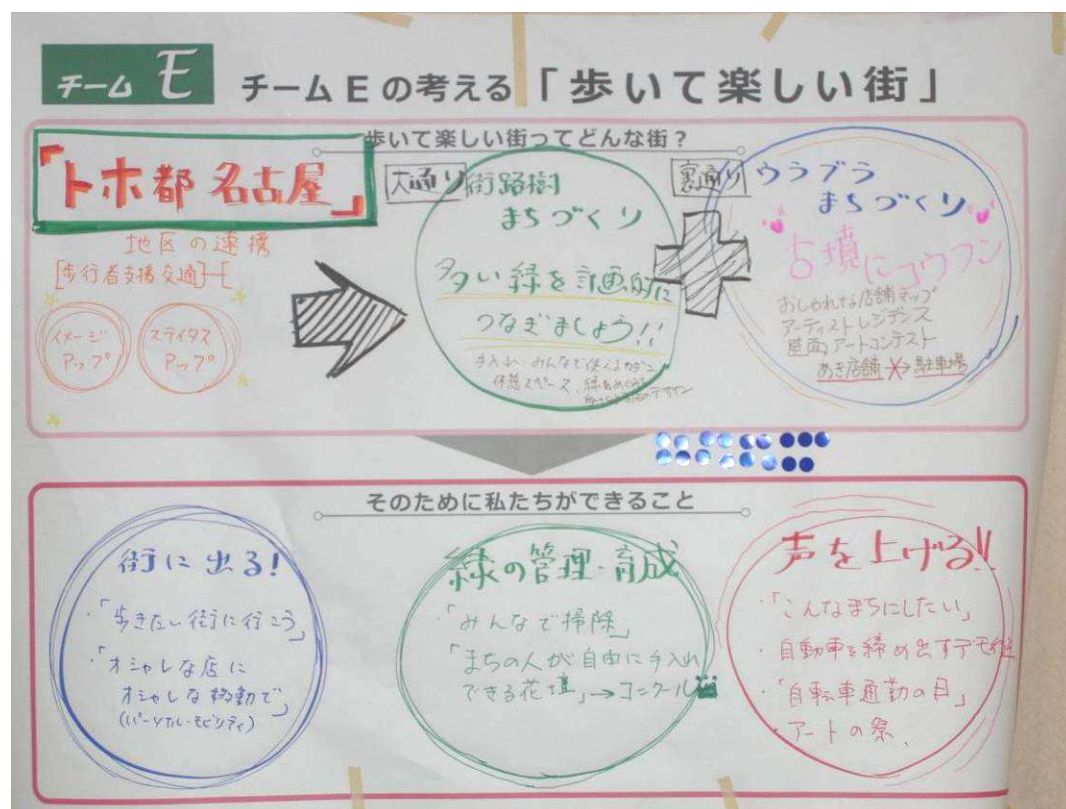 チーム E
チーム E の考える「歩いて楽しい街」
歩いて楽しい街ってどんな街？
『トホ都 名古屋』
地区の連携
[歩行者支援交通]
イメージ
アップ
ステイタス
アップ
大通り
街路樹
まちづくり
多い緑を計画的に
つなぎましょう!!
手入れ・みんなで使える
休憩スペース、緑をめぐる
デザイン
裏通り
ウラブラ
まちづくり
古墳にコウフン
おしゃれな店舗マップ
アーティストレジデンス
壁面アートコンテスト
あき店舗 駐車場
そのために私たちができること
街に出る!
・「歩きたい街に行こう」
・「オシャレな店に
オシャレな移動で」
(パーソナル・モビリティ)
緑の管理・育成
・「みんなで掃除」
・「まちの人が自由に手入れ
できる花壇」→コンクール
声を上げる!!
・「こんなまちにしたい」
・自動車を締め出すデモ行進
・「自転車通勤の日」
アートの祭、